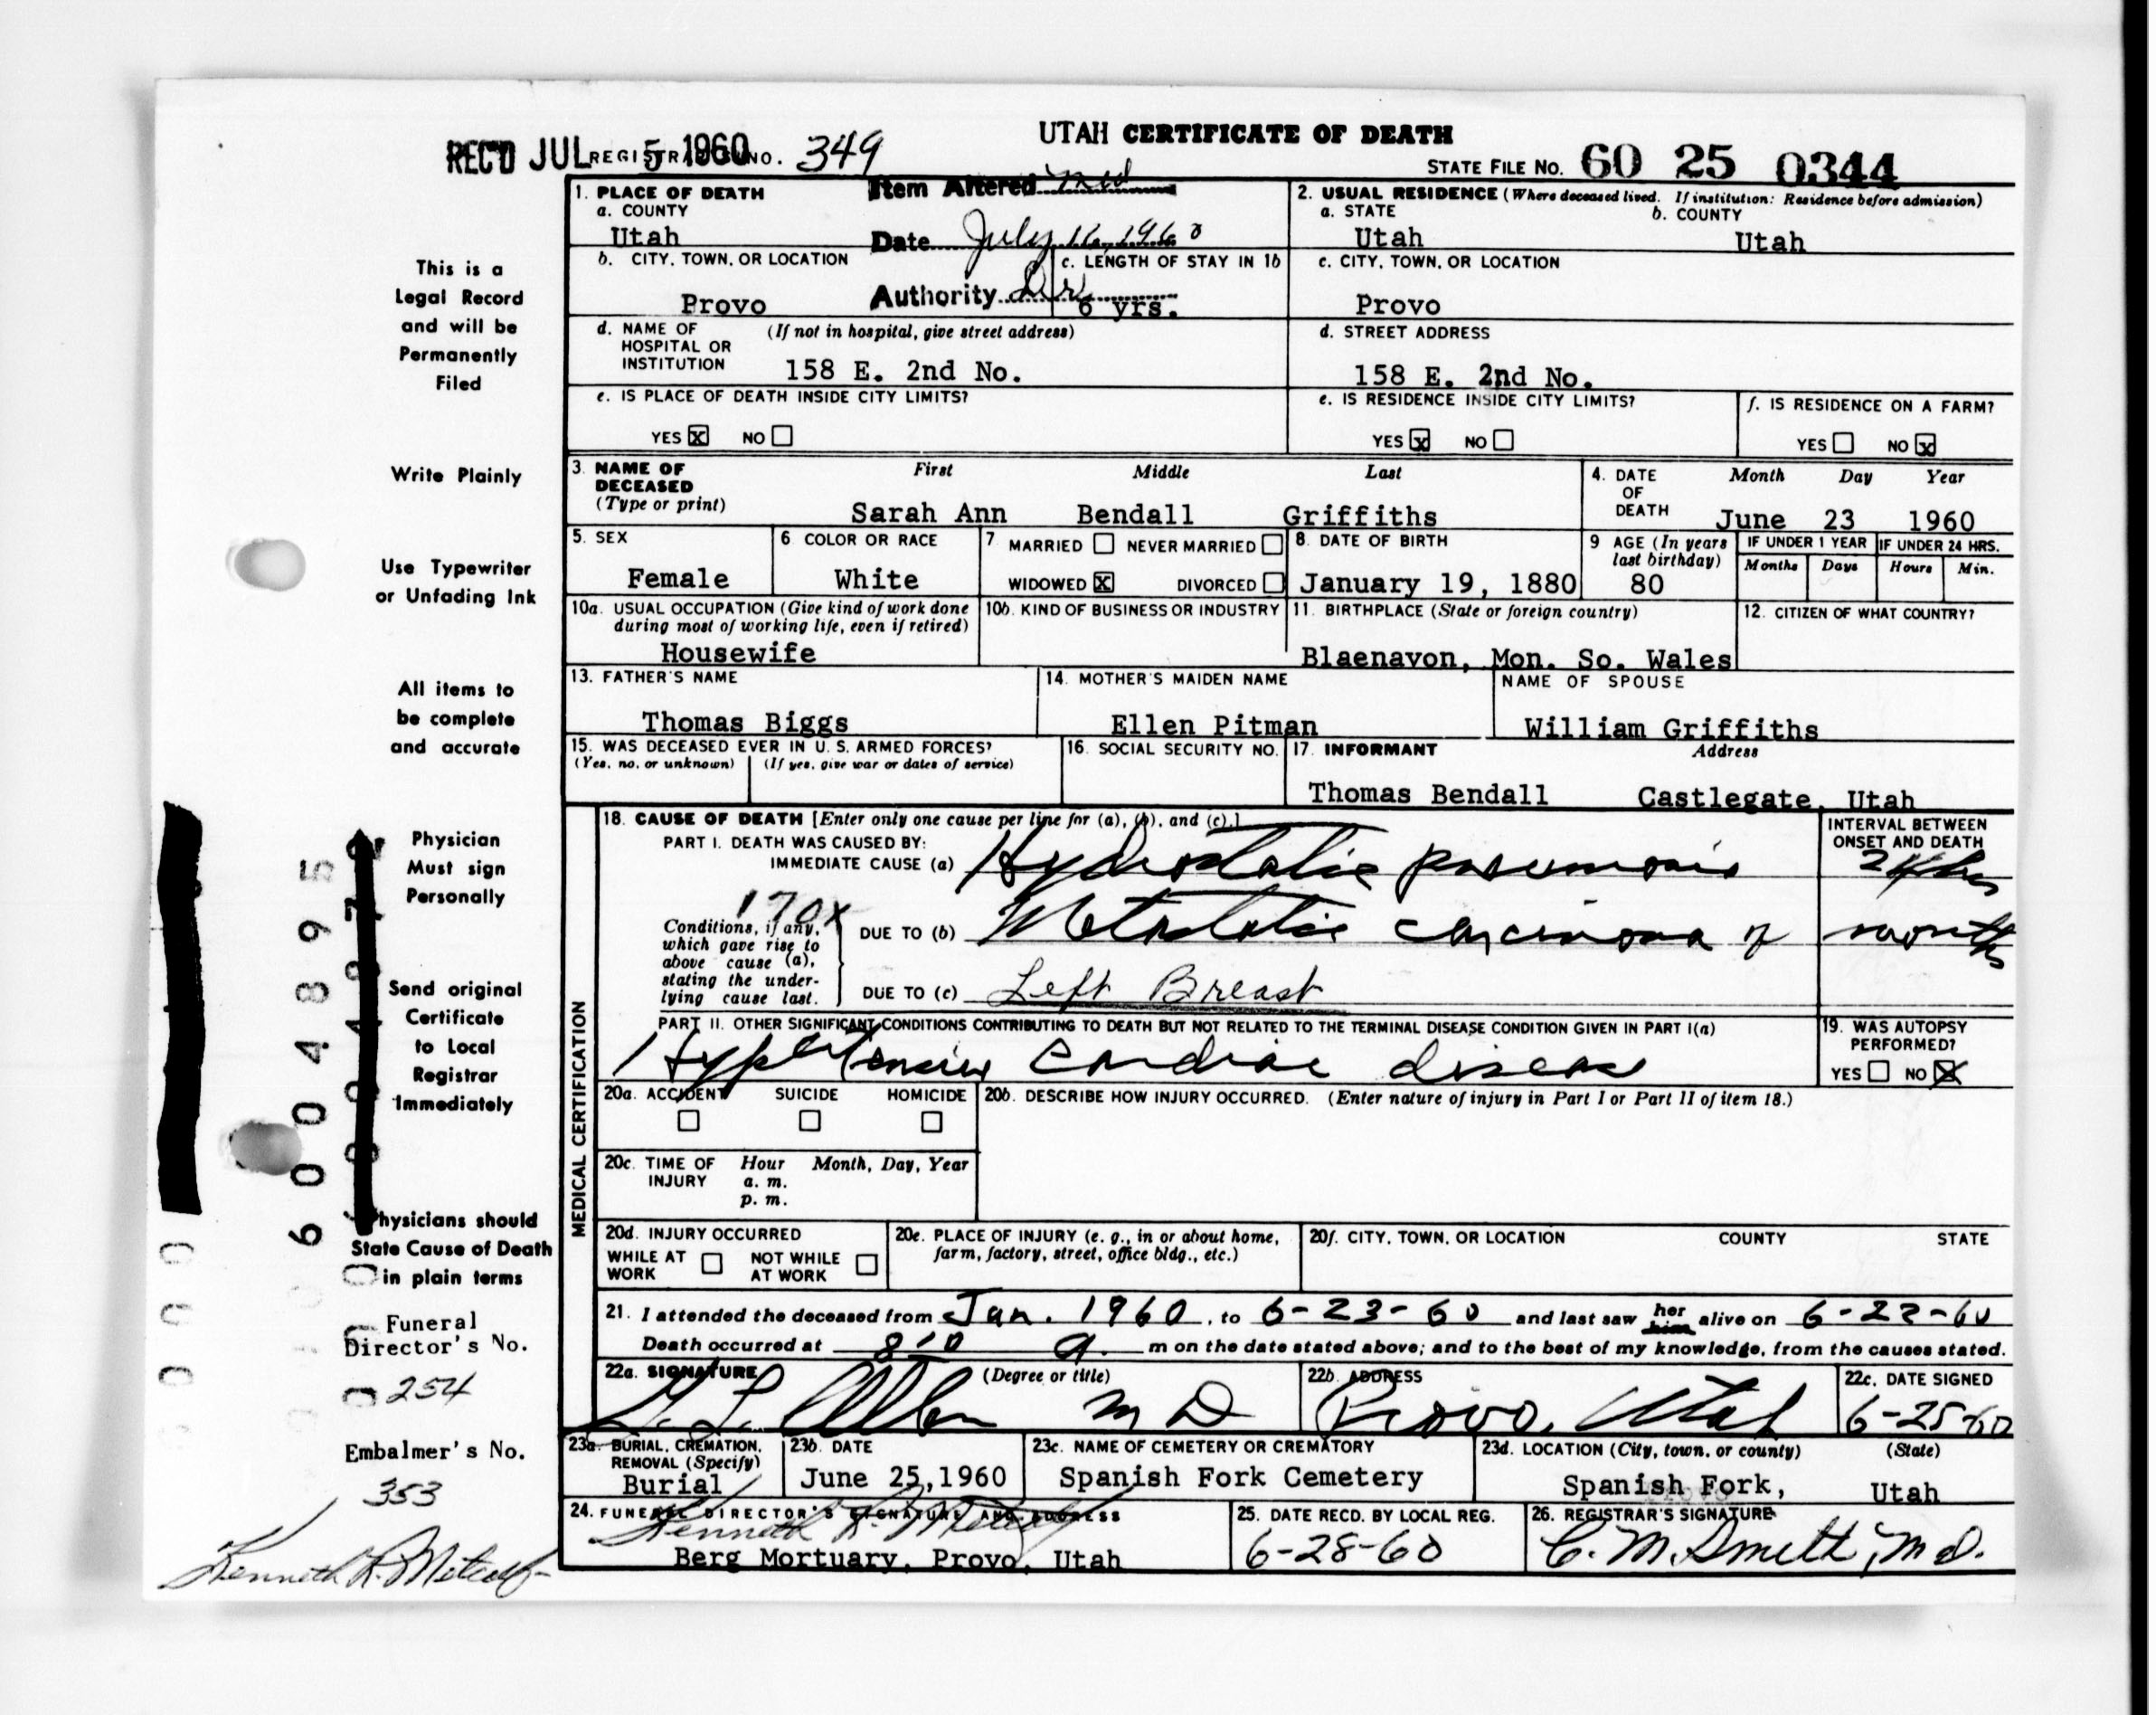 UTAH CERTIFICATE OF DEATH
REC'D JUL 5 1960 REGISTRAR'S NO. 349
STATE FILE NO. 60 25 0344
Item Altered med
Date July 1960
Authority Dr
1. PLACE OF DEATH
a. COUNTY
Utah
b. CITY, TOWN, OR LOCATION
Provo
c. LENGTH OF STAY IN 1b
6 yrs.
d. NAME OF HOSPITAL OR INSTITUTION (If not in hospital, give street address)
158 E. 2nd No.
e. IS PLACE OF DEATH INSIDE CITY LIMITS?
YES X NO
2. USUAL RESIDENCE (Where deceased lived. If institution: Residence before admission)
a. STATE b. COUNTY
Utah Utah
c. CITY, TOWN, OR LOCATION
Provo
d. STREET ADDRESS
158 E. 2nd No.
e. IS RESIDENCE INSIDE CITY LIMITS?
YES X NO
f. IS RESIDENCE ON A FARM?
YES NO X
3. NAME OF DECEASED (Type or print) First Middle Last
Sarah Ann Bendall Griffiths
4. DATE OF DEATH Month Day Year
June 23 1960
5. SEX
Female
6. COLOR OR RACE
White
7 MARRIED NEVER MARRIED
WIDOWED X DIVORCED
8. DATE OF BIRTH
January 19, 1880
9 AGE (In years last birthday)
80
IF UNDER 1 YEAR IF UNDER 24 HRS.
Months Days Hours Min.
10a. USUAL OCCUPATION (Give kind of work done during most of working life, even if retired)
Housewife
10b. KIND OF BUSINESS OR INDUSTRY
11. BIRTHPLACE (State or foreign country)
Blaenavon, Mon. So. Wales
12. CITIZEN OF WHAT COUNTRY?
13. FATHER'S NAME
Thomas Biggs
14. MOTHER'S MAIDEN NAME
Ellen Pitman
NAME OF SPOUSE
William Griffiths
15. WAS DECEASED EVER IN U. S. ARMED FORCES?
(Yes, no, or unknown) (If yes, give war or dates of service)
16. SOCIAL SECURITY NO.
17. INFORMANT Address
Thomas Bendall Castlegate, Utah
MEDICAL CERTIFICATION
18. CAUSE OF DEATH [Enter only one cause per line for (a), (b), and (c).]
PART I. DEATH WAS CAUSED BY:
IMMEDIATE CAUSE (a) Hydrostatic pneumonia
INTERVAL BETWEEN ONSET AND DEATH
24 hrs
170X
Conditions, if any, which gave rise to above cause (a), stating the underlying cause last.
DUE TO (b) Metastatic carcinoma of months
DUE TO (c) Left Breast
PART II. OTHER SIGNIFICANT CONDITIONS CONTRIBUTING TO DEATH BUT NOT RELATED TO THE TERMINAL DISEASE CONDITION GIVEN IN PART I(a)
Hypertensive cardiac disease
19. WAS AUTOPSY PERFORMED?
YES NO X
20a. ACCIDENT SUICIDE HOMICIDE
20b. DESCRIBE HOW INJURY OCCURRED. (Enter nature of injury in Part I or Part II of item 18.)
20c. TIME OF INJURY Hour Month, Day, Year
a. m.
p. m.
20d. INJURY OCCURRED
WHILE AT WORK NOT WHILE AT WORK
20e. PLACE OF INJURY (e. g., in or about home, farm, factory, street, office bldg., etc.)
20f. CITY, TOWN, OR LOCATION COUNTY STATE
21. I attended the deceased from Jan. 1960, to 6-23-60 and last saw her him alive on 6-22-60
Death occurred at 8:10 a. m on the date stated above; and to the best of my knowledge, from the causes stated.
22a. SIGNATURE (Degree or title)
Allen M D
22b. ADDRESS
Provo, Utah
22c. DATE SIGNED
6-25-60
23a. BURIAL, CREMATION, REMOVAL (Specify)
Burial
23b. DATE
June 25,1960
23c. NAME OF CEMETERY OR CREMATORY
Spanish Fork Cemetery
23d. LOCATION (City, town, or county) (State)
Spanish Fork, Utah
24. FUNERAL DIRECTOR'S SIGNATURE AND ADDRESS
Kenneth R. Metcalf
Berg Mortuary, Provo, Utah
25. DATE RECD. BY LOCAL REG.
6-28-60
26. REGISTRAR'S SIGNATURE
C. M. Smith, M.D.
This is a
Legal Record
and will be
Permanently
Filed
Write Plainly
Use Typewriter
or Unfading Ink
All items to
be complete
and accurate
Physician
Must sign
Personally
Send original
Certificate
to Local
Registrar
Immediately
Physicians should
State Cause of Death
in plain terms
Funeral
Director's No.
254
Embalmer's No.
353
Kenneth R. Metcalf
6004895